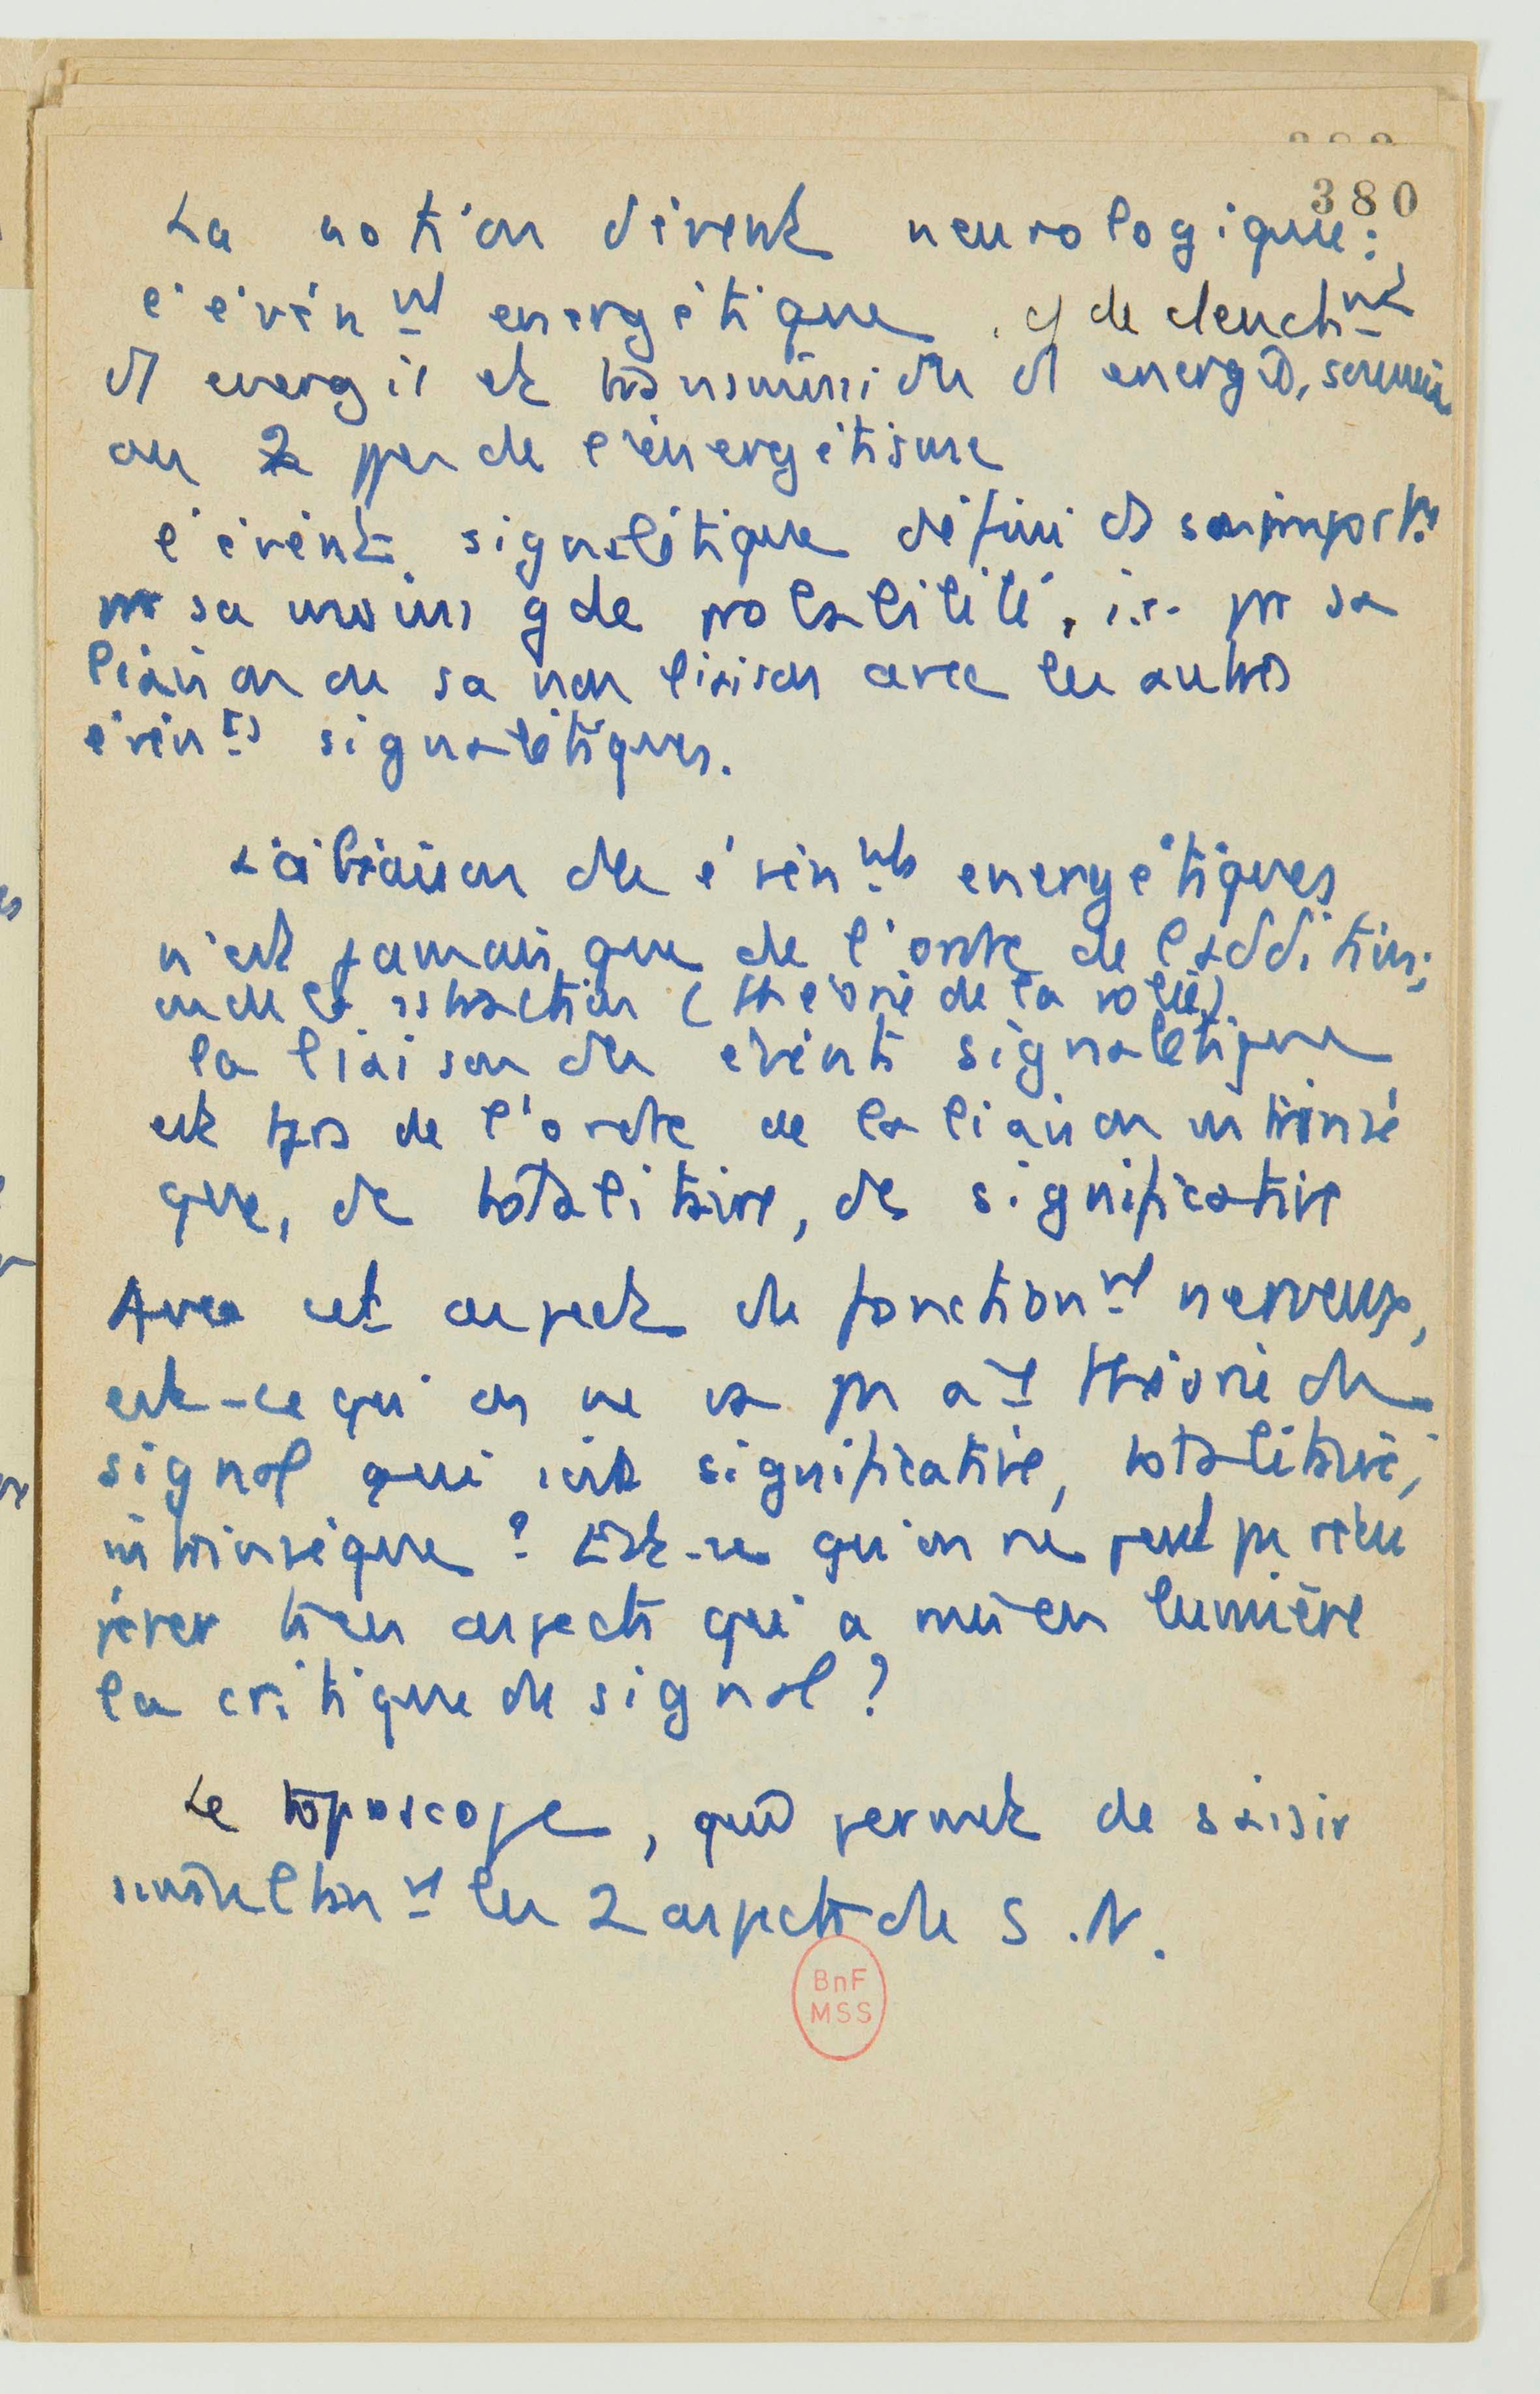 380
La notion d'évent neurologique :
l'évén^nt énergétique, cf déclench^nt
d'énergie et transmission d'énergie, soumis
au 2 ppes de l'énergétisme
l'évént signalétique défini ds son import.
pr sa moins gde probabilité, i.e. pr sa
liaison ou sa non liaison avec les autres
évén^ts signalétiques.
La liaison des évén^nts énergétiques
n'est jamais que de l'ordre de l'addition,
ou de la sstraction (théorie de la
la liaison des événts signalétique
est tjrs de l'ordre de la liaison intrinsè
que, de totalitaire, de significative
Avec cet aspect du fonctionn^nt nerveux,
est-ce qu'on ne va pas à 1 théorie du
signal qui soit significative, totalitaire,
intrinsèque ? Est-ce qu'on ne peut pas récu
pérer tous aspects qu'a mis en lumière
la critique du signal ?
Le toposcope, qui permet de saisir
simultan^nt les 2 aspects du S.N.
BnF
MSS